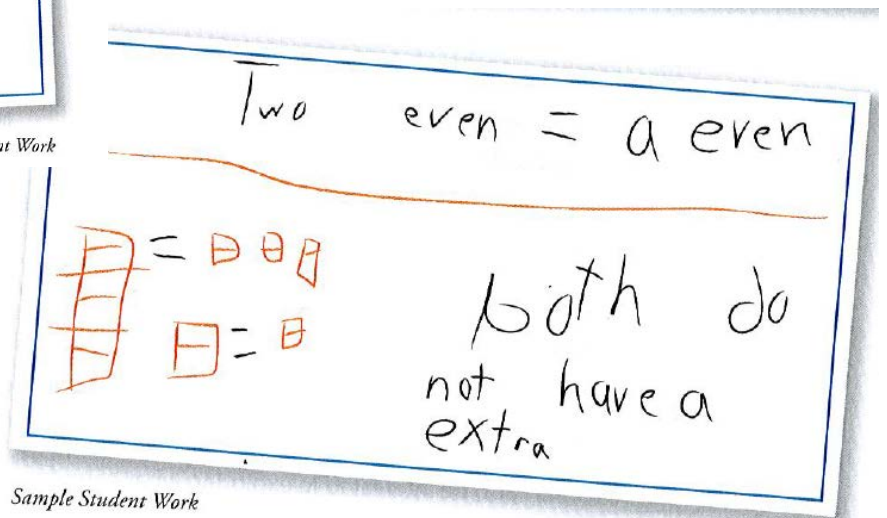 nt Work
Two even = a even
= 
both do
=
not have a
extra
Sample Student Work